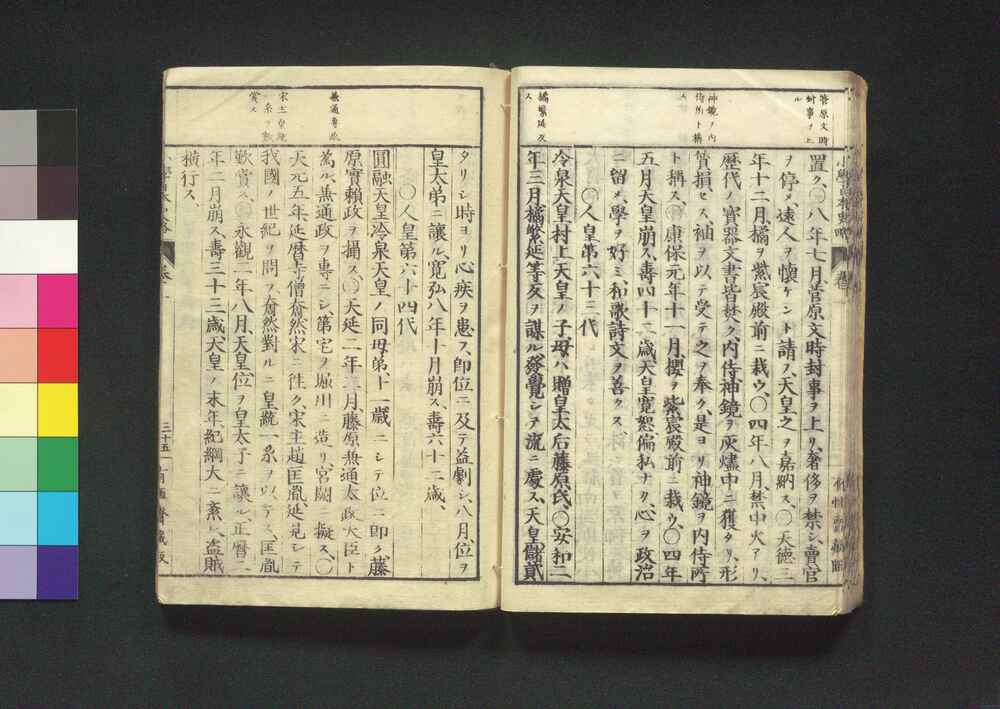 菅原文時
封事ヲ上
ル
神鏡ノ内
侍所ト稱
ス
橘繁延反
ス
置ク、〇八年七月菅原文時封事ヲ上リ、奢侈ヲ禁シ、賣官
ヲ停メ、遠人ヲ懷ケント請フ、天皇之ヲ嘉納ス、〇天德三
年十二月、橘ヲ紫宸殿前ニ栽ウ、〇四年八月、禁中火アリ、
歷代ノ寳器文書皆焚ク、内侍神鏡ヲ灰燼中ニ獲タリ、形
質損セス、袖ヲ以テ受テ之ヲ奉ク、是ヨリ神鏡ヲ内侍所
ト稱ス、〇康保元年十一月、櫻ヲ紫宸殿前ニ栽ウ、〇四年
五月天皇崩ス、壽四十二歲、天皇寬恕偏私ナク、心ヲ政治
ニ留メ、學ヲ好ミ、和歌詩文ヲ善クス、
〇人皇第六十三代
冷泉天皇村上天皇ノ子母ハ贈皇太后藤原氏、〇安和二
年三月橘繁延等反ヲ謀ル、發覺シテ流ニ處ス、天皇儲貳
兼通專恣
宋主皇統
一系ヲ歎
賞ス
タリシ時ヨリ心疾ヲ患ス、即位ニ及テ益劇シ、八月、位ヲ
皇大弟ニ讓ル、寬弘八年十月崩ス、壽六十二歲、
〇人皇第六十四代
圓融天皇冷泉天皇ノ同母弟、十一歲ニシテ位ニ即ク、藤
原實賴政ヲ攝ス、〇天延二年二月、藤原兼通太政大臣ト
爲ル、兼通政ヲ專ニシ、第宅ヲ堀川ニ造リ、宮闕ニ擬ス、〇
天元五年延曆寺僧奝然宋ニ徃ク、宋主趙匡胤延見シテ
我國ノ世紀ヲ問フ、奝然對ルニ皇統一系ヲ以テス、匡胤
歎賞ス、〇永觀二年八月、天皇位ヲ皇太子ニ讓ル、正曆二
年二月崩ス、壽三十三歲、天皇ノ末年紀綱大ニ紊レ、盜賊
橫行ス、
三十五